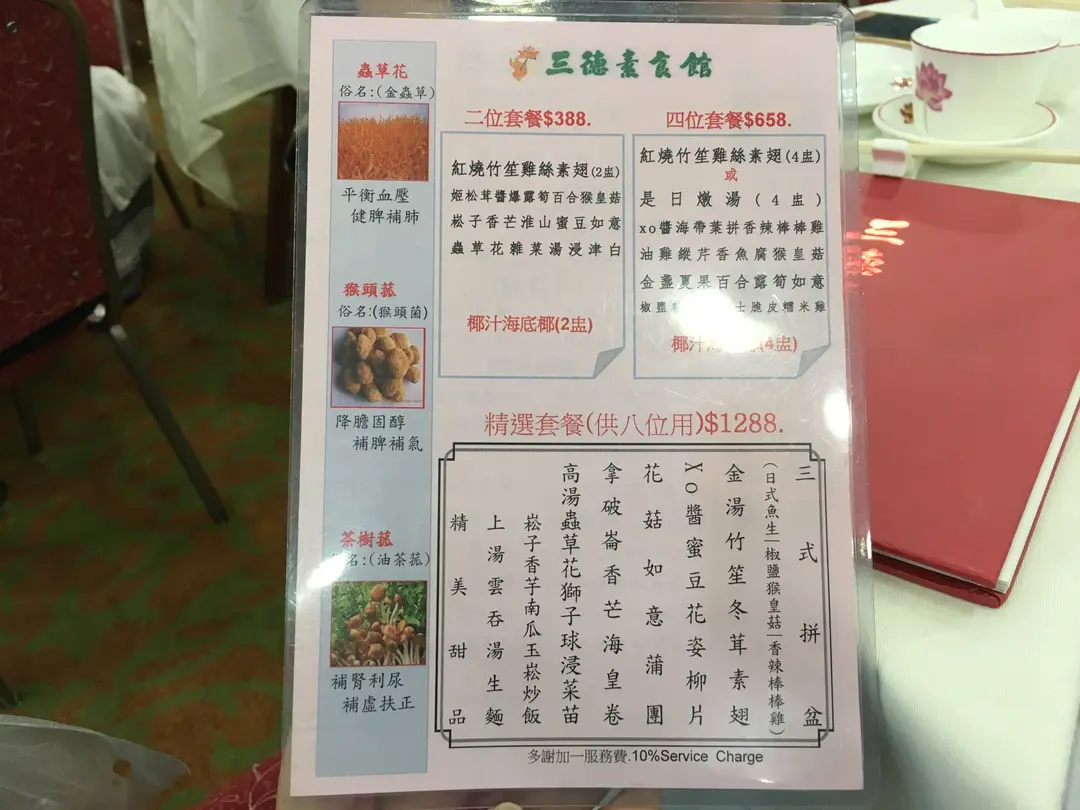 三德素食館
蟲草花
俗名:(金蟲草)
平衡血壓
健脾補肺
猴頭菰
俗名:(猴頭菌)
降膽固醇
補脾補氣
茶樹菰
名:(油茶菰)
補腎利尿
補虛扶正
二位套餐$388.
紅燒竹笙雞絲素翅(2盅)
姬松茸醬爆露筍百合猴皇菇
崧子香芒淮山蜜豆如意
蟲草花雜菜湯浸津白
椰汁海底椰(2盅)
四位套餐$658.
紅燒竹笙雞絲素翅(4盅)
或
是日燉湯(4盅)
xo醬海帶葉拼香辣棒棒雞
油雞縱芹香魚腐猴皇菇
金盞夏果百合露筍如意
椒鹽 士脆皮糯米雞
椰汁海 (4盅)
精選套餐(供八位用)$1288.
三式拼盆
(日式魚生|椒鹽猴皇菇|香辣棒棒雞)
金湯竹笙冬茸素翅
Xo醬蜜豆花姿柳片
花菇如意蒲團
拿破崙香芒海皇卷
高湯蟲草花獅子球浸菜苗
崧子香芋南瓜玉崧炒飯
上湯雲吞湯生麵
精美甜品
多謝加一服務費.10%Service Charge